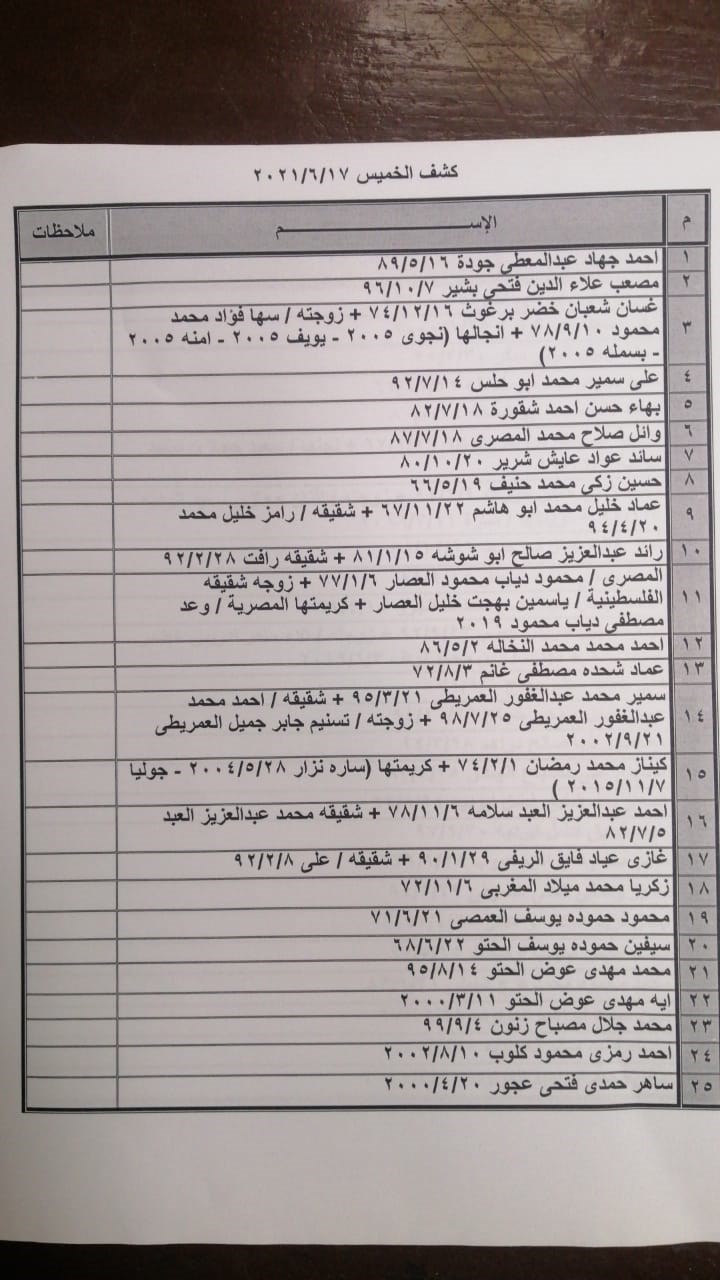 كشف الخميس ٢٠٢١/٦/١٧
م الإســـــــــم ملاحظات
١ احمد جهاد عبدالمعطى جودة ٨٩/٥/١٦
٢ مصعب علاء الدين فتحي بشير ٩٦/١٠/٧
غسان شعبان خضر برغوث ٧٤/١٢/١٦ + زوجته / سها فؤاد محمد
٣ محمود ٧٨/٩/١٠ + انجالها (نجوى ٢٠٠٥ - يويف ٢٠٠٥ - امنه ٢٠٠٥
- بسمله ٢٠٠٥)
٤ على سمير محمد ابو حلس ٩٢/٧/١٤
٥ بهاء حسن احمد شقورة ٨٢/٧/١٨
٦ وائل صلاح محمد المصرى ٨٧/٧/١٨
٧ سائد عواد عايش شرير ٨٠/١٠/٢٠
٨ حسين زكي محمد حنيف ٦٦/٥/١٩
٩ عماد خليل محمد ابو هاشم ٦٧/١١/٢٢ + شقيقه / رامز خليل محمد
٩٤/٤/٢٠
١٠ رائد عبدالعزيز صالح ابو شوشه ٨١/١/١٥ + شقيقه رافت ٩٢/٢/٢٨
المصرى / محمود دياب محمود العصار ٧٧/١/٦ + زوجه شقيقه
١١ الفلسطينية / ياسمين بهجت خليل العصار + كريمتها المصرية / وعد
مصطفى دياب محمود ٢٠١٩
١٢ احمد محمد محمد النخاله ٨٦/٥/٢
١٣ عماد شحده مصطفى غانم ٧٢/٨/٣
سمير محمد عبدالغفور العمريطى ٩٥/٣/٢١ + شقيقه / احمد محمد
١٤ عبدالغفور العمريطى ٩٨/٧/٢٥ + زوجته / تسنيم جابر جميل العمريطى
٢٠٠٢/٩/٢١
١٥ كيناز محمد رمضان ٧٤/٢/١ + كريمتها (ساره نزار ٢٠٠٤/٥/٢٨ - جوليا
٢٠١٥/١١/٧ )
١٦ احمد عبدالعزيز العبد سلامه ٧٨/١١/٦ + شقيقه محمد عبدالعزيز العبد
٨٢/٧/٥
١٧ غازى عياد فايق الريفى ٩٠/١/٢٩ + شقيقه / على ٩٢/٢/٨
١٨ زكريا محمد ميلاد المغربى ٧٢/١١/٦
١٩ محمود حموده يوسف العمصى ٧١/٦/٢١
٢٠ سيفين حموده يوسف الحتو ٦٨/٦/٢٢
٢١ محمد مهدى عوض الحتو ٩٥/٨/١٤
٢٢ ايه مهدى عوض الحتو ٢٠٠٠/٣/١١
٢٣ محمد جلال مصباح زنون ٩٩/٩/٤
٢٤ احمد رمزى محمود كلوب ٢٠٠٢/٨/١٠
٢٥ ساهر حمدى فتحى عجور ٢٠٠٠/٤/٢٠